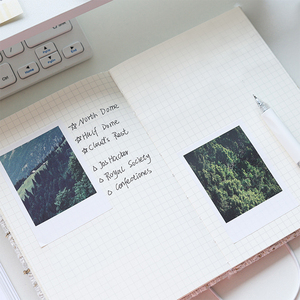 ☆North Dome
☆Half Dome
☆Cloud's Rest
△ Jas Hacker
△ Royal Society
△ Confectiones
Ctrl